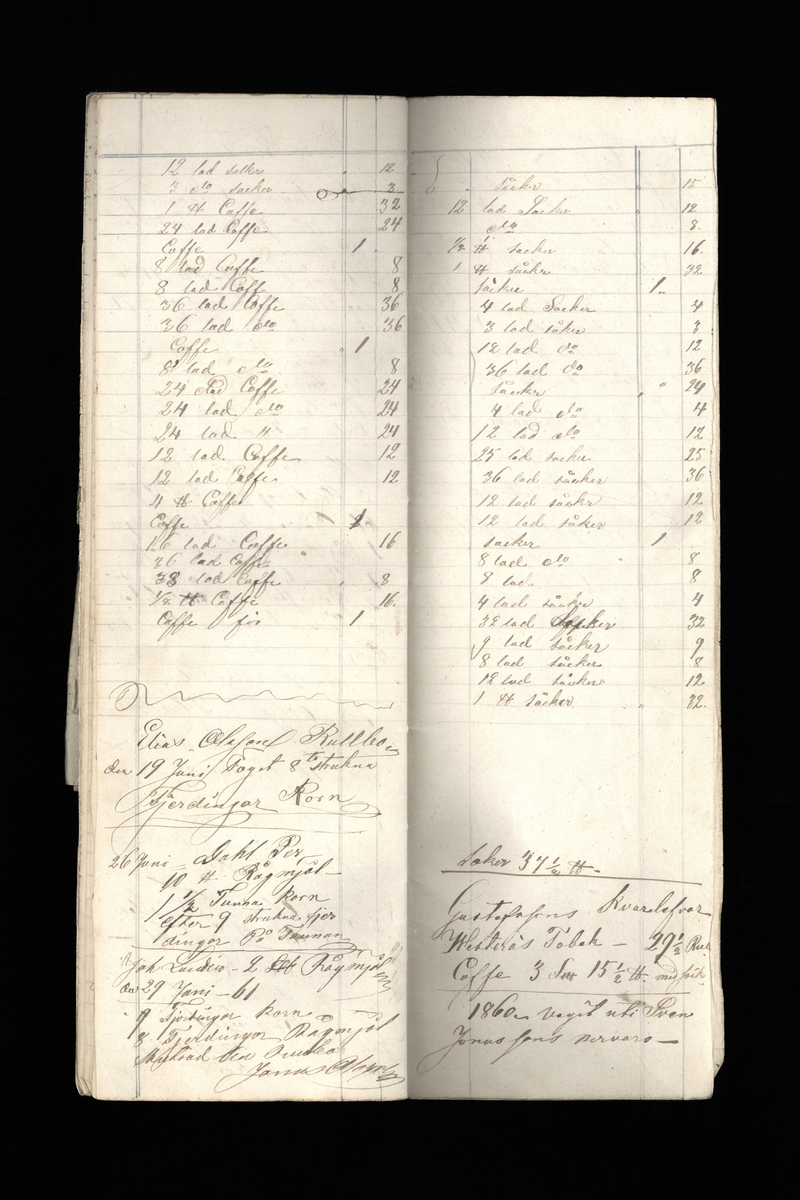 12 lod sokker " 12
3 do socker 3
1 ℔ Caffe 32
24 lod Caffe 24
Caffe 1
8 lod Caffe 8
8 lod Caff 8
36 lod Caffe 36
36 lod do 36
Caffe " 1
8 lod do 8
24 lod Caffe 24
24 lod do 24
24 lod " 24
12 lod Caffe 12
12 lod Caffe 12
4 ℔ Caffe
Caffe 1
16 lod Caffe 16
36 lod Caffe
38 lod Caffe 8
1/2 ℔ Caffe 16
Caffe för 1
Elias Olsson
den 19 Juni Toget 8 strukna
Fjerdingar Korn
26 Juni Dahl Per
10 ℔ Rågmjöl
1 1/2 Tunna Korn
efter 9 strukna fjer
dingar På Tunnan
Joh 2 ℔ Rågmjöl
den 29 Juni - 61
9 Fjerdingar Korn
3 Fjerdingar Rågmjöl
Jonas Olsson
såker 15
12 lod Såcker " 12
do 8
1/2 ℔ socker 16
1 ℔ såkr 32
såcker 1 "
4 lod Såcker 4
3 lod såker 3
12 lod do 12
36 lod do 36
såcker " " 24
4 lod do 4
12 lod do 12
25 lod socker 25
36 lod såcker 36
12 lod såckr 12
12 lod såker 12
socker 1
8 lod do 8
8 lod 8
4 lod såcker 4
32 lod 32
9 lod såcker 9
8 lod såcker 8
12 lod såcker 12
1 ℔ såcker " 32
Soker 37 1/2 ℔
Gustafssons Kvarlefvor
Westerås Tobak - 29 1/2
Caffe 3 15 1/2 ℔ med
1860 vagit uti Sven
Jonassons nervaro